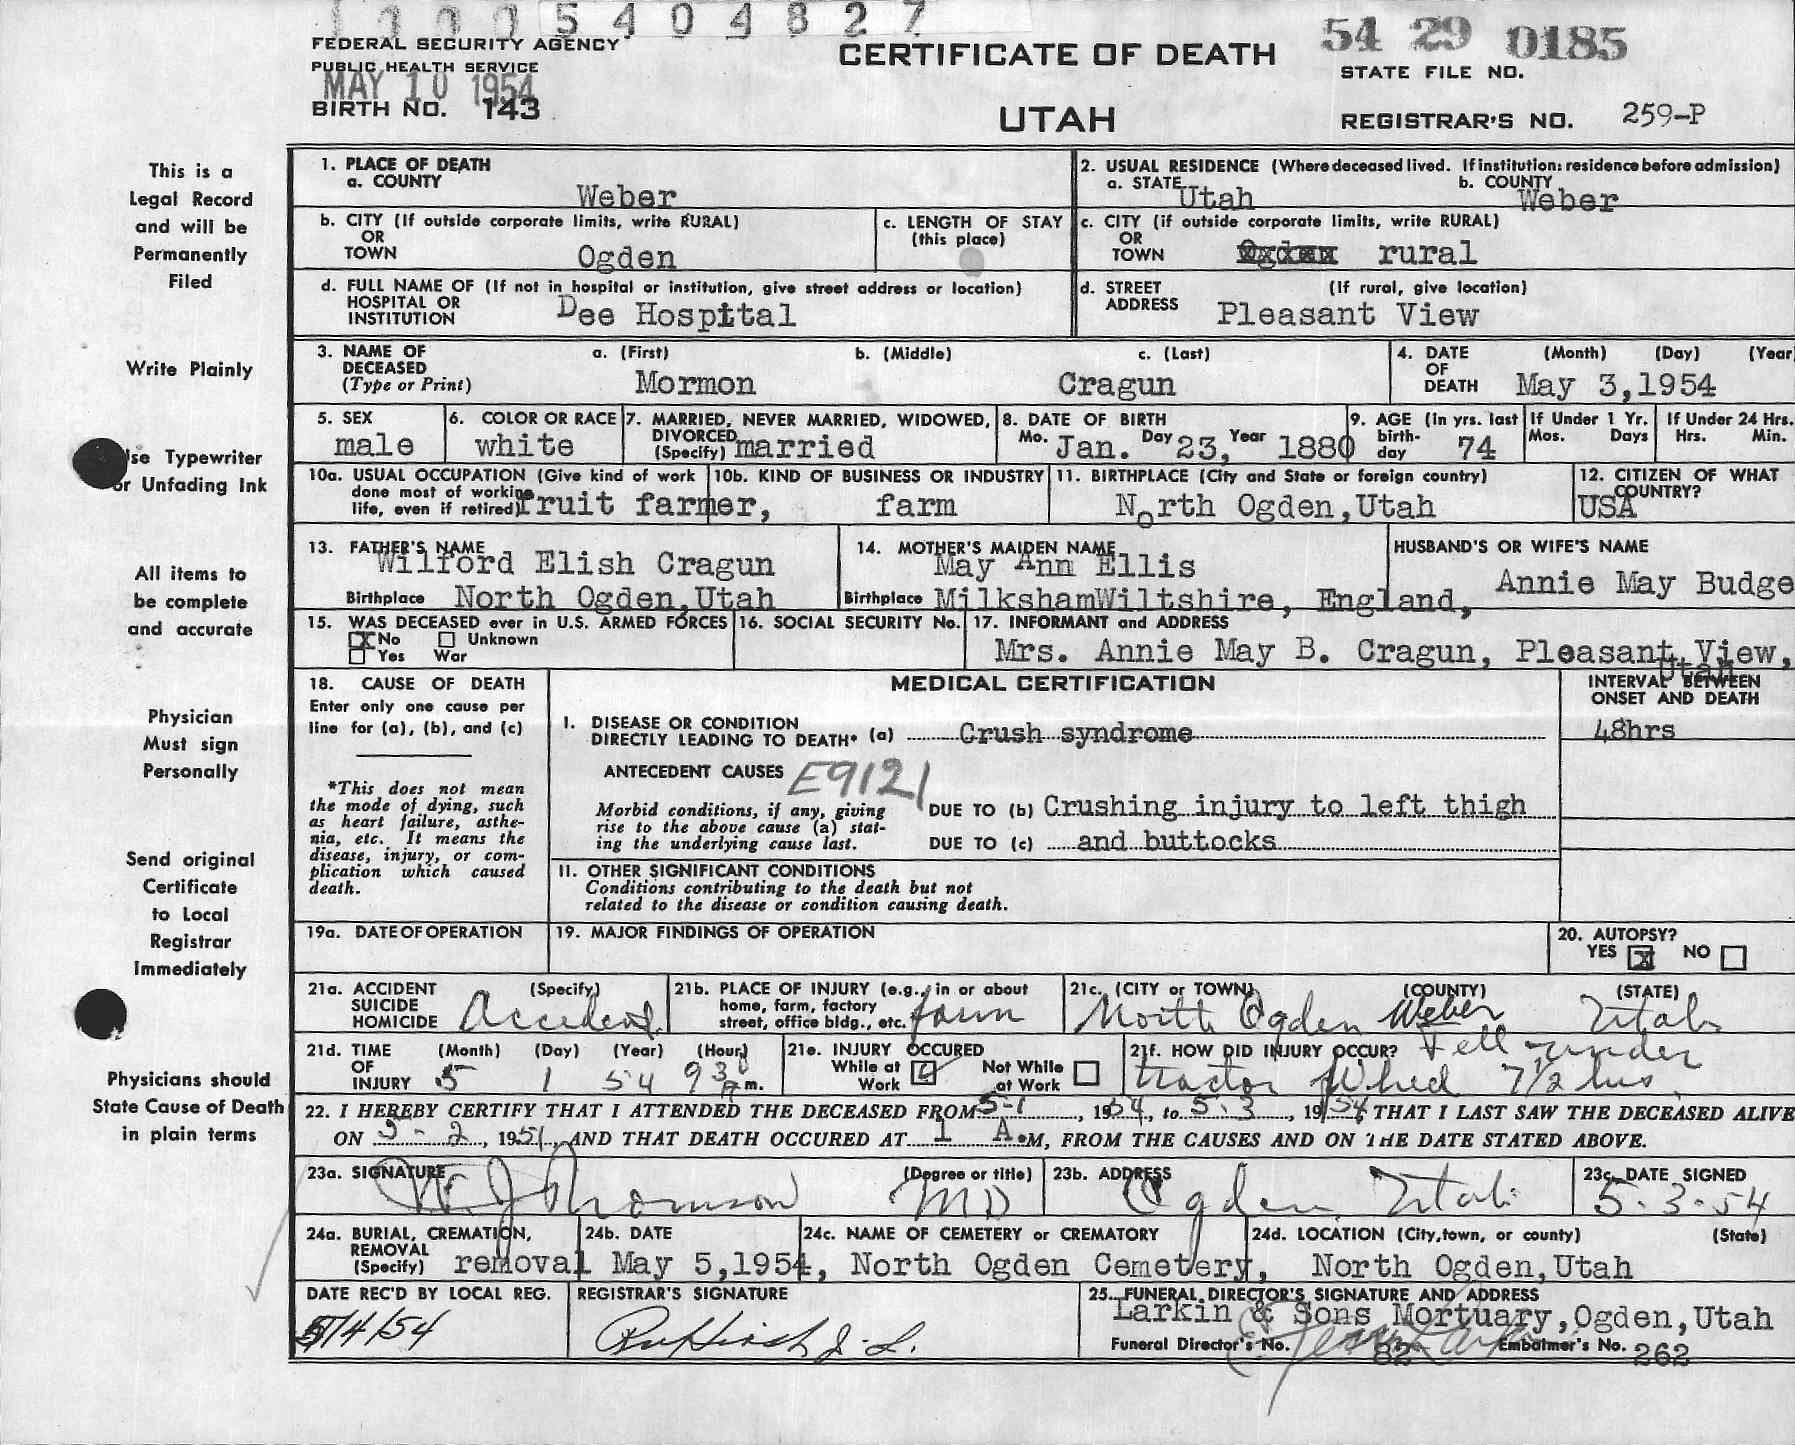 1 0 0 0 5 4 0 4 8 2 7
FEDERAL SECURITY AGENCY
PUBLIC HEALTH SERVICE
MAY 10 1954
BIRTH NO. 143
CERTIFICATE OF DEATH
UTAH
54 29 0185
STATE FILE NO.
REGISTRAR'S NO. 259-P
This is a
Legal Record
and will be
Permanently
Filed
Write Plainly
Use Typewriter
or Unfading Ink
All items to
be complete
and accurate
Physician
Must sign
Personally
Send original
Certificate
to Local
Registrar
Immediately
Physicians should
State Cause of Death
in plain terms
1. PLACE OF DEATH
a. COUNTY Weber
2. USUAL RESIDENCE (Where deceased lived. If institution: residence before admission)
a. STATE Utah b. COUNTY Weber
b. CITY (If outside corporate limits, write RURAL)
OR
TOWN Ogden
c. LENGTH OF STAY
(this place)
c. CITY (if outside corporate limits, write RURAL)
OR
TOWN Ogden rural
d. FULL NAME OF (If not in hospital or institution, give street address or location)
HOSPITAL OR
INSTITUTION Dee Hospital
d. STREET (If rural, give location)
ADDRESS Pleasant View
3. NAME OF DECEASED (Type or Print)
a. (First) b. (Middle) c. (Last)
Mormon Cragun
4. DATE OF DEATH (Month) (Day) (Year
May 3,1954
5. SEX
male
6. COLOR OR RACE
white
7. MARRIED, NEVER MARRIED, WIDOWED,
DIVORCED
(Specify) married
8. DATE OF BIRTH
Mo. Jan. Day 23, Year 1880
9. AGE (In yrs. last
birth-
day 74
If Under 1 Yr.
Mos. Days
If Under 24 Hrs.
Hrs. Min.
10a. USUAL OCCUPATION (Give kind of work
done most of working
life, even if retired) fruit farmer,
10b. KIND OF BUSINESS OR INDUSTRY
farm
11. BIRTHPLACE (City and State or foreign country)
North Ogden,Utah
12. CITIZEN OF WHAT
COUNTRY?
USA
13. FATHER'S NAME
Wilford Elish Cragun
Birthplace North Ogden,Utah
14. MOTHER'S MAIDEN NAME
May Ann Ellis
Birthplace MilkshamWiltshire, England,
HUSBAND'S OR WIFE'S NAME
Annie May Budge
15. WAS DECEASED ever in U.S. ARMED FORCES
X No Unknown
Yes War
16. SOCIAL SECURITY No.
17. INFORMANT and ADDRESS
Mrs. Annie May B. Cragun, Pleasant View,
Utah
18. CAUSE OF DEATH
Enter only one cause per
line for (a), (b), and (c)
*This does not mean
the mode of dying, such
as heart failure, asthe-
nia, etc. It means the
disease, injury, or com-
plication which caused
death.
MEDICAL CERTIFICATION
INTERVAL BETWEEN
ONSET AND DEATH
I. DISEASE OR CONDITION
DIRECTLY LEADING TO DEATH* (a) Crush syndrome
48hrs
ANTECEDENT CAUSES E9121
Morbid conditions, if any, giving
rise to the above cause (a) stat-
ing the underlying cause last.
DUE TO (b) Crushing injury to left thigh
DUE TO (c) and buttocks
II. OTHER SIGNIFICANT CONDITIONS
Conditions contributing to the death but not
related to the disease or condition causing death.
19a. DATE OF OPERATION
19. MAJOR FINDINGS OF OPERATION
20. AUTOPSY?
YES X NO
21a. ACCIDENT (Specify)
SUICIDE
HOMICIDE Accident
21b. PLACE OF INJURY (e.g., in or about
home, farm, factory
street, office bldg., etc. farm
21c. (CITY or TOWN) (COUNTY) (STATE)
North Ogden Weber Utah
21d. TIME OF INJURY
(Month) (Day) (Year) (Hour)
5 1 54 9 30 m.
21e. INJURY OCCURED
While at Work Not While at Work
21f. HOW DID INJURY OCCUR? Fell under
tractor Wheel 7 1/2 hrs
22. I HEREBY CERTIFY THAT I ATTENDED THE DECEASED FROM 5-1, 1954, to 5-3, 1954 THAT I LAST SAW THE DECEASED ALIVE
ON 5-2, 1954, AND THAT DEATH OCCURED AT 1 A.M, FROM THE CAUSES AND ON THE DATE STATED ABOVE.
23a. SIGNATURE (Degree or title)
Thomson MD
23b. ADDRESS
Ogden Utah
23c. DATE SIGNED
5-3-54
24a. BURIAL, CREMATION,
REMOVAL
(Specify) removal
24b. DATE
May 5,1954,
24c. NAME OF CEMETERY or CREMATORY
North Ogden Cemetery,
24d. LOCATION (City,town, or county) (State)
North Ogden,Utah
DATE REC'D BY LOCAL REG.
5/4/54
REGISTRAR'S SIGNATURE
25. FUNERAL DIRECTOR'S SIGNATURE AND ADDRESS
Larkin & Sons Mortuary,Ogden,Utah
Funeral Director's No. 82 Embalmer's No. 262